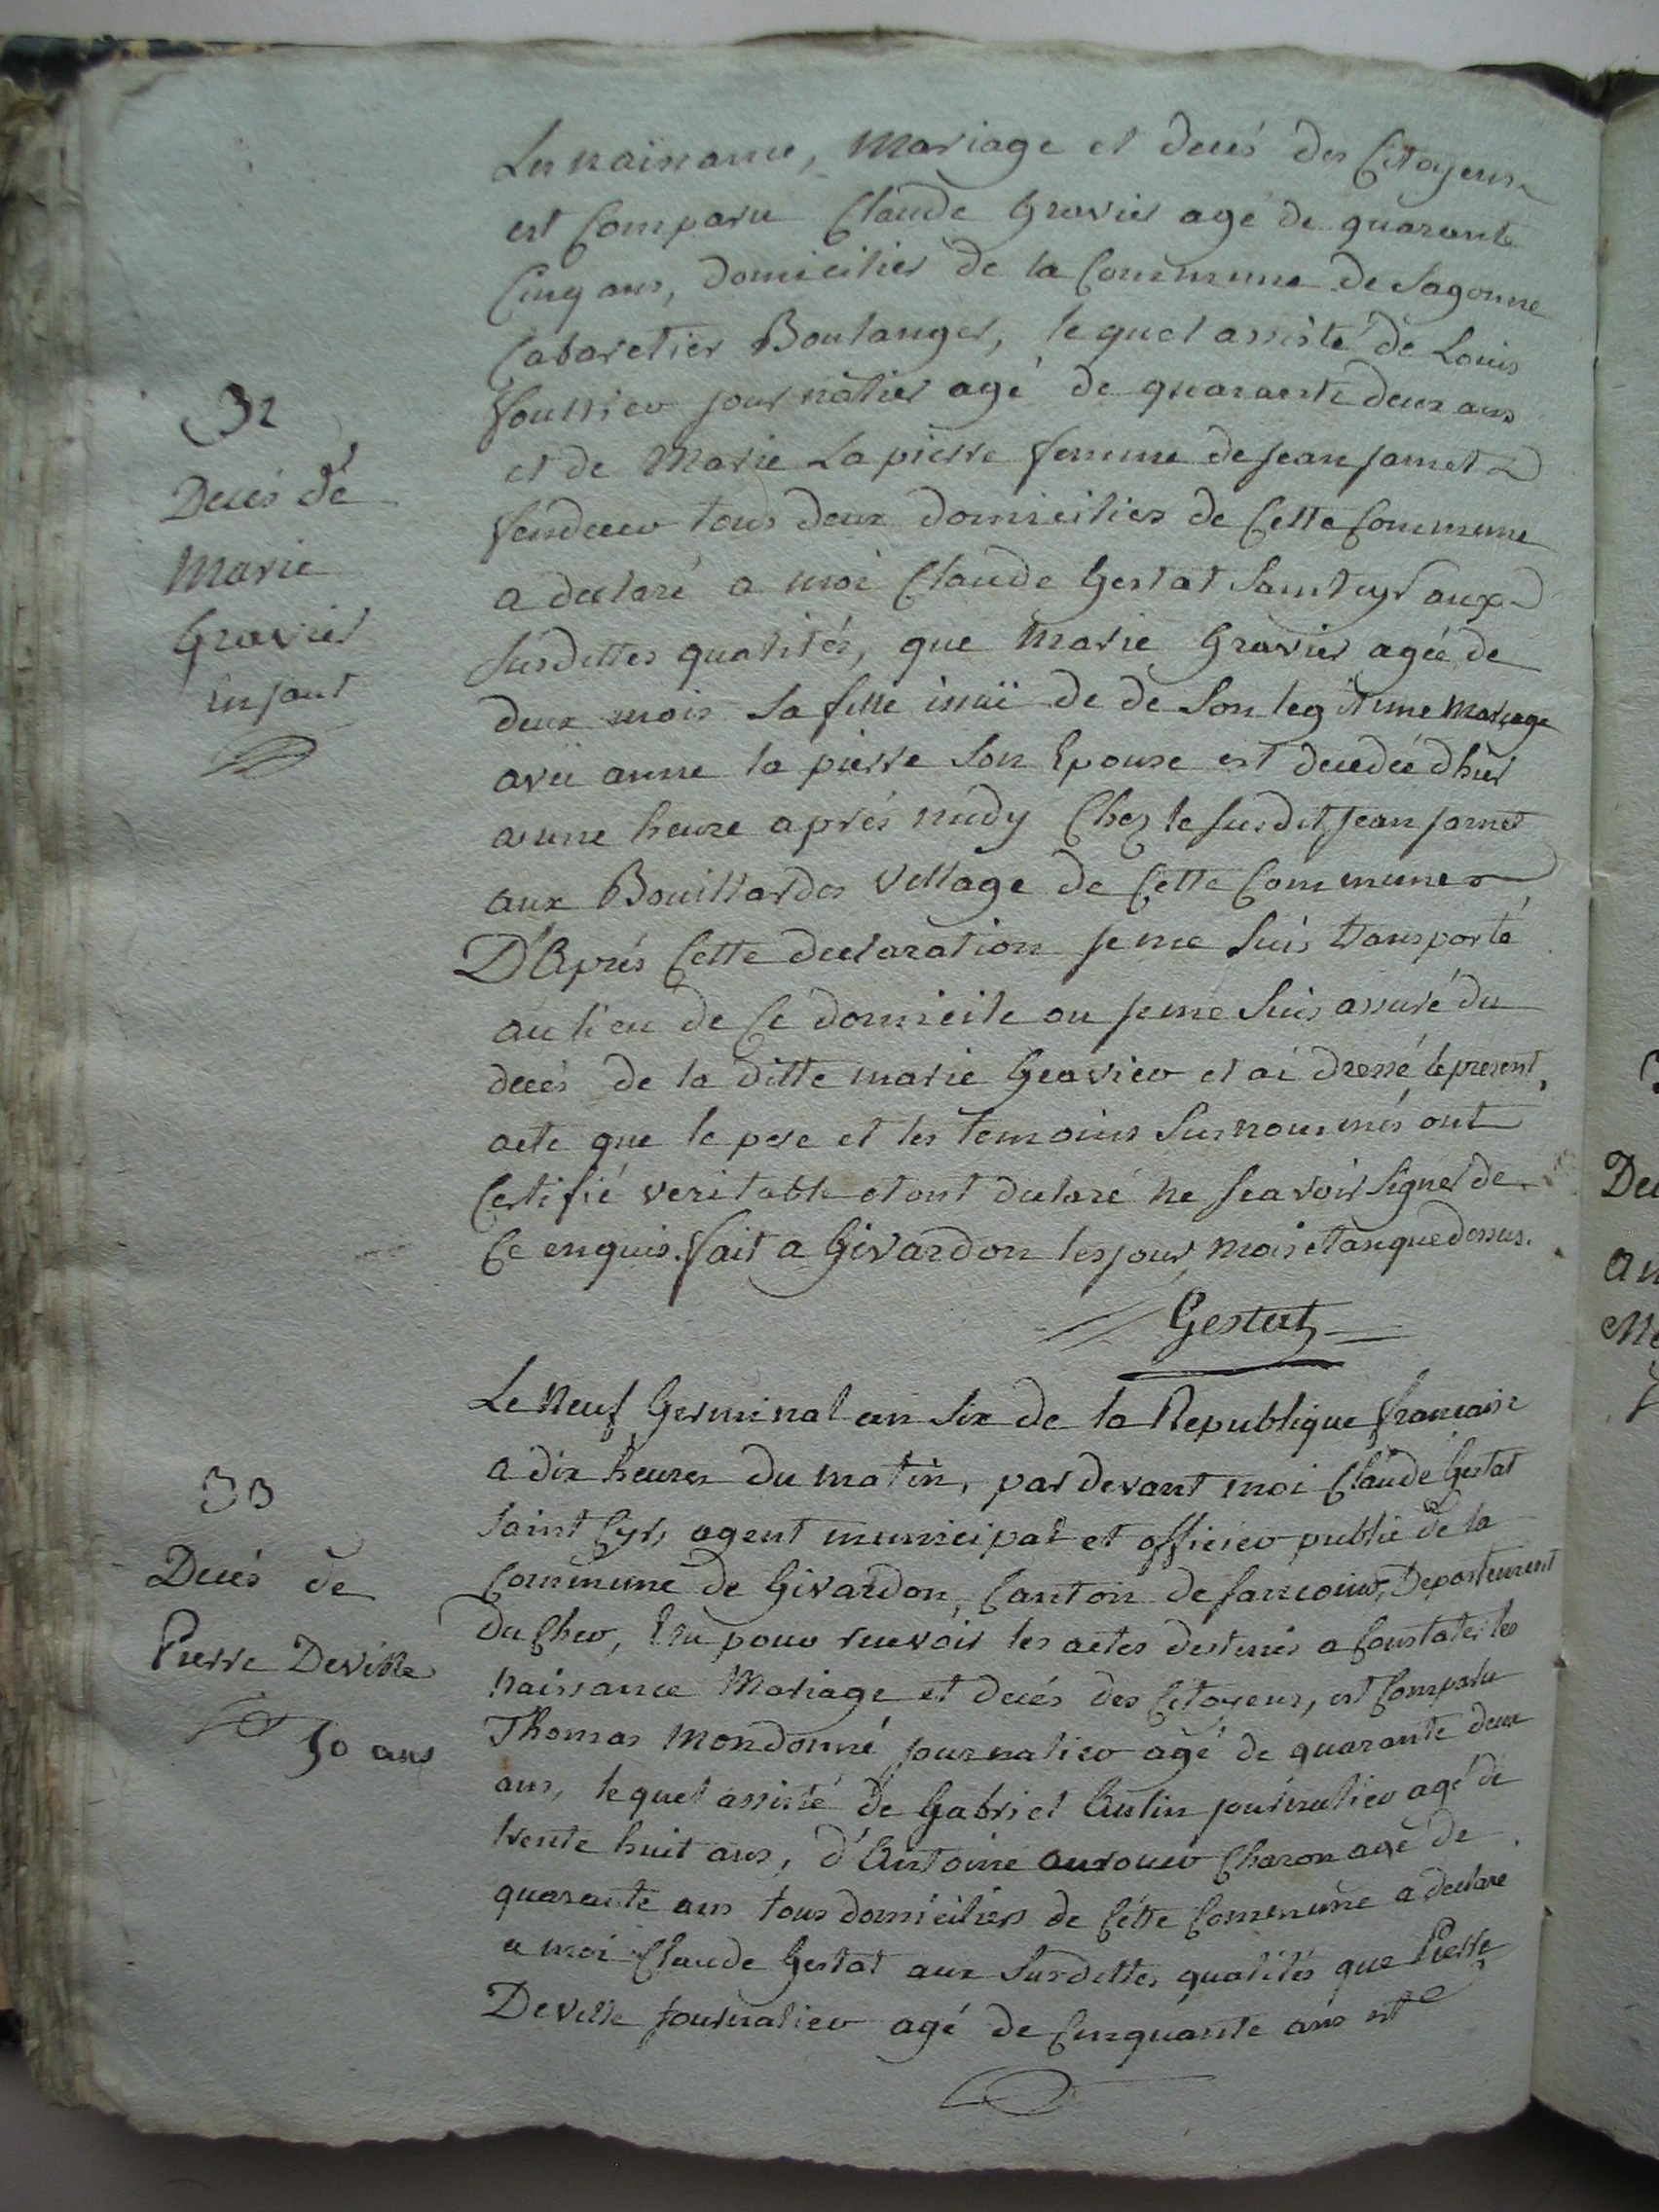 Les naissance, Mariage et decés des Citoyens
est Comparu Claude Gravier agé de quarante
Cinq ans, domicilier de la Commune de Sagonne
Cabaretier Boulanger, lequel assisté de Louis
journalier agé de quarante deux ans
et de Marie Lapierre femme de jean jamet
fendeur tous deux domicilies de Cette Commune
a declaré a moi Claude Gestat Saintcyr aux
Susdittes qualités, que Marie Gravier agée de
deux mois Sa fille issüe de de Son legitime Mariage
avec anne la pierre Son Epouse est decedée d'hier
a une heure aprés midy Chez le susdit jean jamet
aux Bouillardes Village de Cette Commune
D'Aprés Cette declaration je me Suis transporté
au lieu de Ce domicile ou je me Suis assuré du
decés de la ditte marie Gravier et ai dressé le present
acte que le pere et les temoins Susnommés ont
Certifié veritable et ont declaré ne Scavoir Signer de
Ce enquis. fait a Givardon les jour, mois et an que dessus.
Gestat
32
Decés de
Marie
Gravier
Enfant
Le Neuf Germinal an Six de la Republique francaise
a dix heures du matin, par devant moi Claude Gestat
Saint Cyr, agent municipal et officier public de la
Commune de Givardon, Canton de Sancoins, Departement
Du Cher, Elu pour recevoir les actes destinés a Constater les
naissance Mariage et decés des Citoyens, est Comparu
Thomas Mondonné journalier agé de quarante deux
ans, lequel assisté de Gabriel Autin journalier agé de
trente huit ans, d'Antoine Charon agé de
quarante ans tous domiciliers de Cette Commune a declaré
a moi Claude Gestat aux Susdittes qualités que Pierre
Deville journalier agé de Cinquante ans est
33
Decés de
Pierre Deville
50 ans